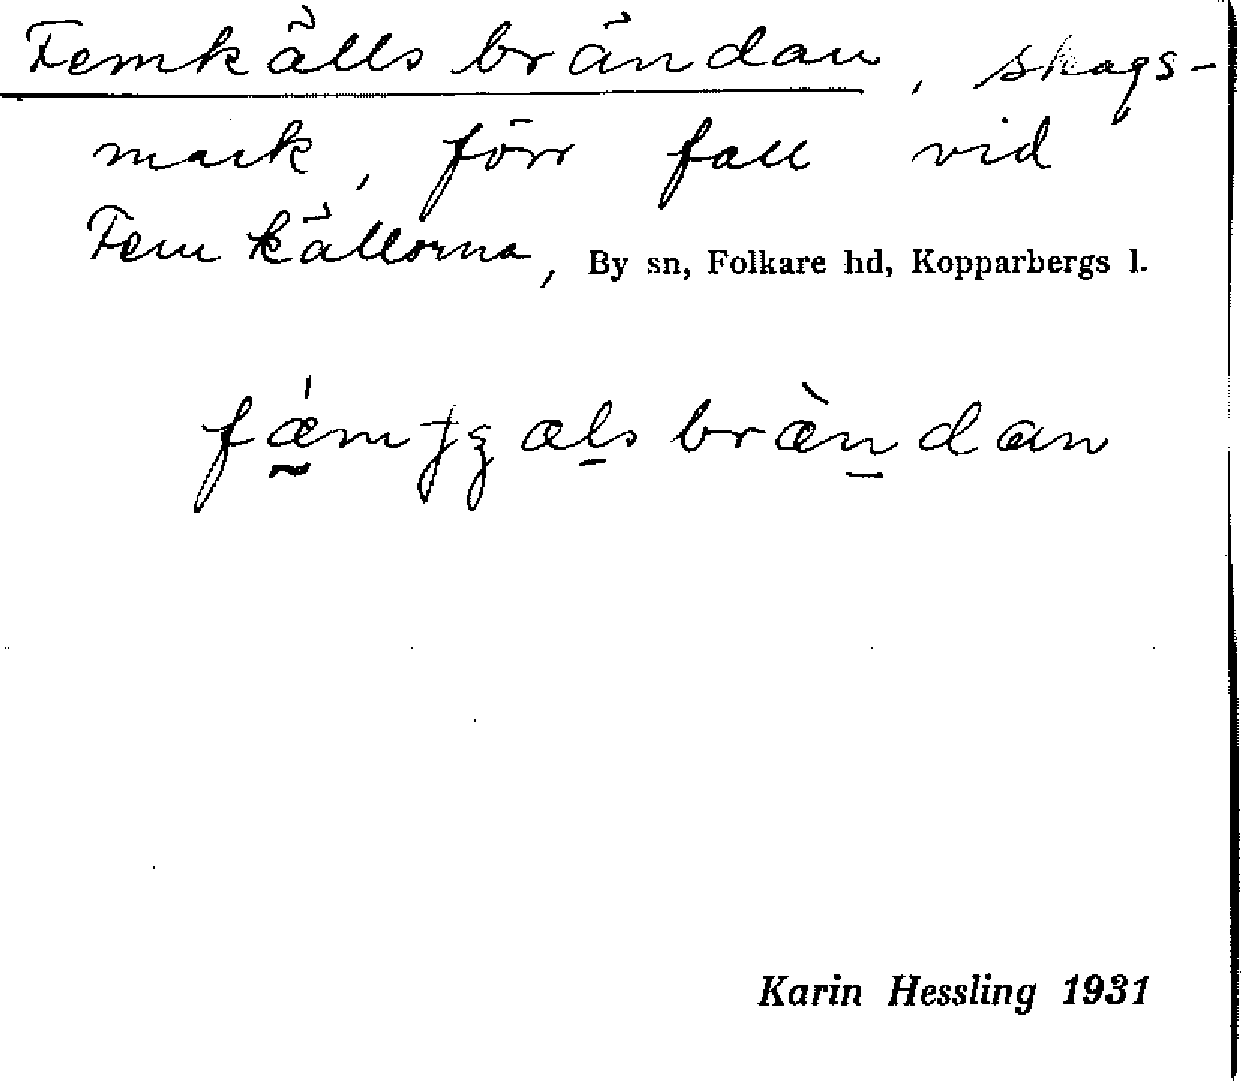 Femkällsbrändan, skogs-
mark, förr fall vid
Femkällorna, By sn, Folkare hd, Kopparbergs l.
Karin Hessling 1931